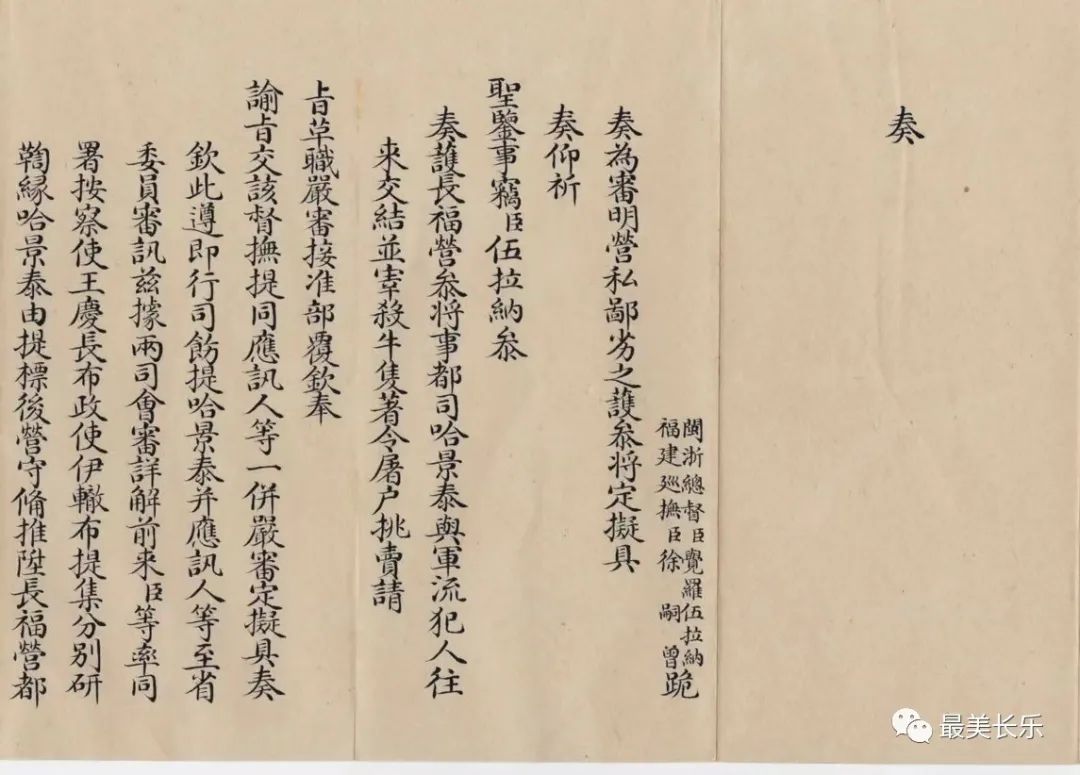 奏
閩浙總督臣覺羅伍拉納
福建廵撫臣徐嗣曾跪
奏為審明營私鄙劣之護叅將定擬具
奏仰祈
聖鑒事竊臣伍拉納叅
奏護長福營叅將事都司哈景泰與軍流犯人往
来交結並宰殺牛隻著令屠户挑賣請
旨革職嚴審接准部覆欽奉
諭旨交該督撫提同應訊人等一併嚴審定擬具奏
欽此遵即行司飭提哈景泰并應訊人等至省
委員審訊兹據兩司會審詳解前来臣等率同
署按察使王慶長布政使伊轍布提集分别研
鞫緣哈景泰由提標後營守備推陞長福營都
最美长乐